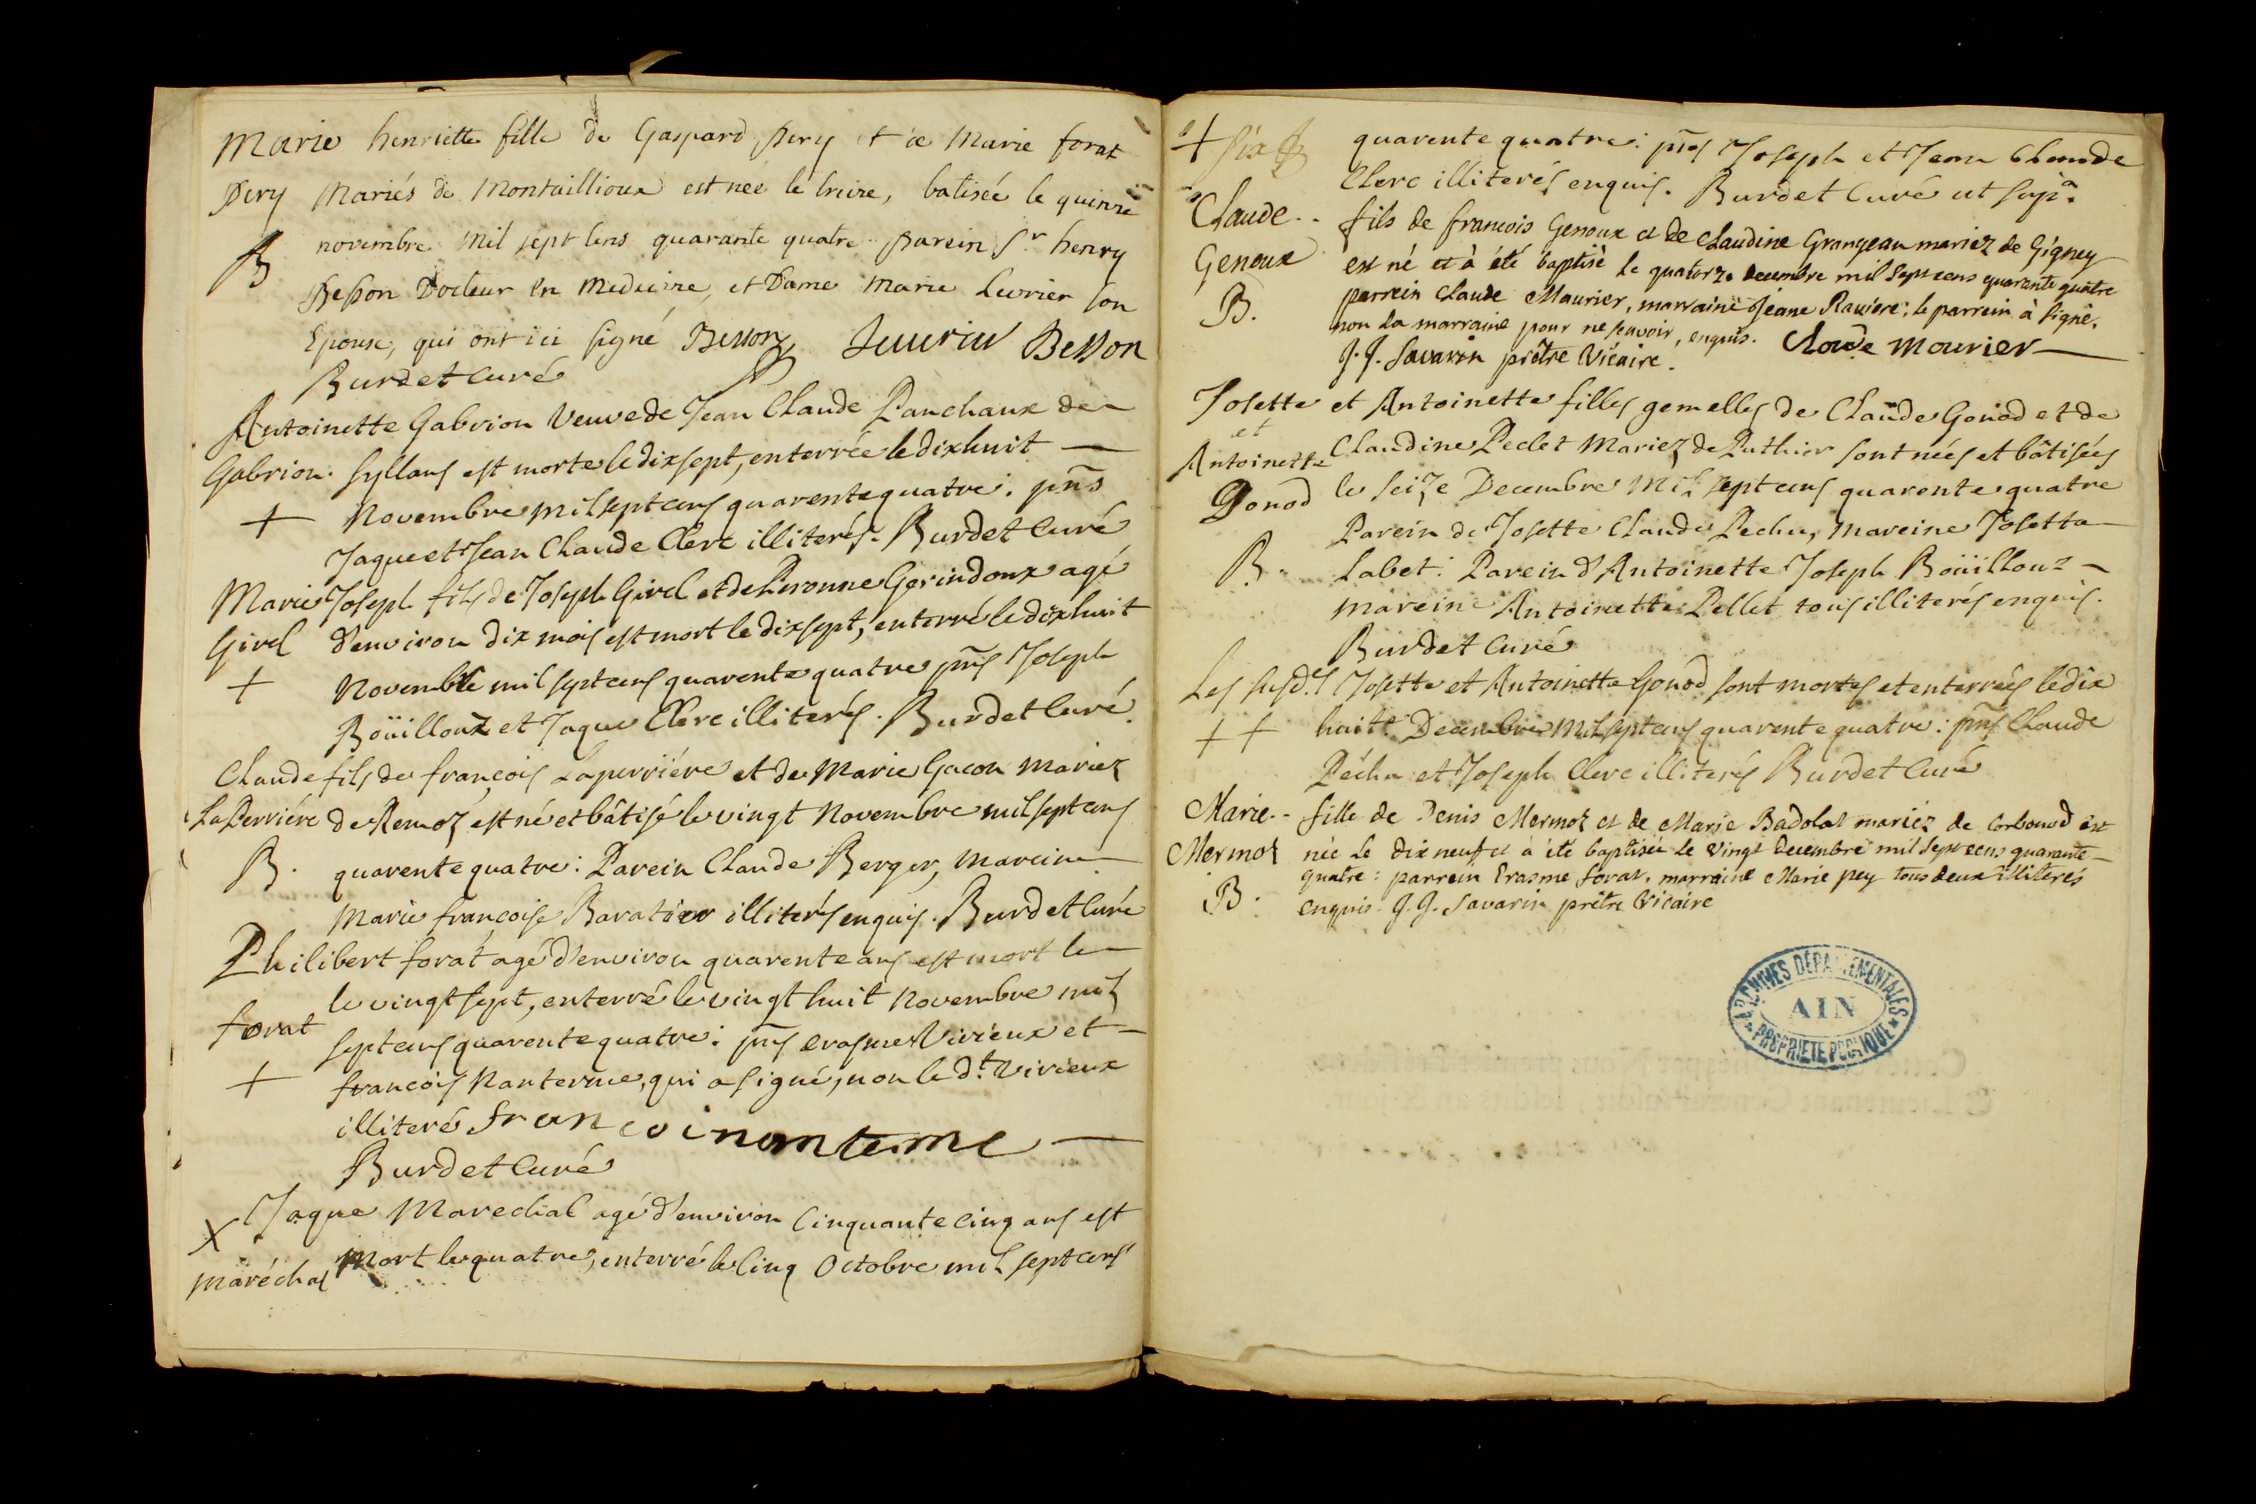 Marie henriette fille de Gaspard Pery et de Marie forat
Pery Mariés de Montaillioux est nee le treize, batisée le quinze
B novembre mil sept cens quarante quatre parein Sr henry
Besson Docteur en Medecine, et Dame Marie Luvrier son
Epouse, qui ont ici signé Besson Luurier Besson
Burdet Curé
Antoinette Gabrion Veuve de Jean Claude Panchaux de
Gabrion. Syllans est morte le dix sept, enterrée le dix huit
+ Novembre mil sept cens quarente quatre. pñs
Jaque et Jean Claude Clerc illiterés. Burdet Curé
Marie Joseph fils de Joseph Girel et de Peronne Gerindoux agé
Girel d'environ dix mois est mort le dix sept, enterré le dix huit
+ Novembre mil sept cens quarente quatre pñs Joseph
Boüillouz et Jaque Clerc illiterés. Burdet Curé.
Claude fils de françois Laperriére et de Marie Gacon Mariez
La Perriére de Remoz est né et bâtisé le vingt Novembre mil sept cens
B. quarente quatre: Parein Claude Berger, Mareine
Marie françoise Baratier illiterés enquis. Burdet Curé
Philibert forat agé d'environ quarente ans est mort le
le vingt sept, enterré le vingt huit Novembre mil
forat sept cens quarente quatre: pñs Erasme Virieux et
+ françois Nanterme, qui a signé, non le dt. Virieux
illiteré francoi nanteme
Burdet Curé
X Jaque Marechal agé d'environ Cinquante cinq ans est
Maréchal Mort le quatre, enterré le cinq Octobre mil sept cens
+ Six quarente quatre: pñs Joseph et Jean Claude
Clerc illiterés enquis. Burdet Curé ut supª.
Claude.. fils de francois Genoux et de Claudine Grangean mariez de Gigney
Genoux est né et à été baptisé le quatorze decembre mil sept cens quarante quatre
B. parrein Claude Maurier, marraine Jeane Raviere; le parrein à signé.
non la marraine pour ne scavoir, enquis. Cloude Mourier
J. J. Savarin prêtre Vicaire.
Josette et Antoinette filles gemelles de Claude Gonod et de
et Antoinette Claudine Peclet Mariez de Puthier sont nées et bâtisées
Gonod le seize Decembre Mil sept cens quarente quatre
Parein de Josette Claude Pechu, Mareine Josette
B. Labet: Parein d'Antoinette Joseph Boüillouz
Mareine Antoinette Pellet tous illiterés enquis.
Burdet Curé
Les susd.s Josette et Antoinette Gonod sont mortes et enterrées le dix
+ + huitt Decembre Mil sept cens quarente quatre: pñs Claude
Péchu et Joseph Clerc illiterés Burdet Curé
Marie.. fille de Denis Mermoz et de Marie Badolat mariéz de Corbonod est
Mermoz née le dix neuf et à été baptisée le vingt decembre mil sept cens quarante
quatre: parrein Erasme forat, marraine Marie pey tous deux illiterés
B. enquis. J. J. Savarin prêtre Vicaire
ARCHIVES DÉPARTEMENTALES
AIN
PROPRIETE PUBLIQUE